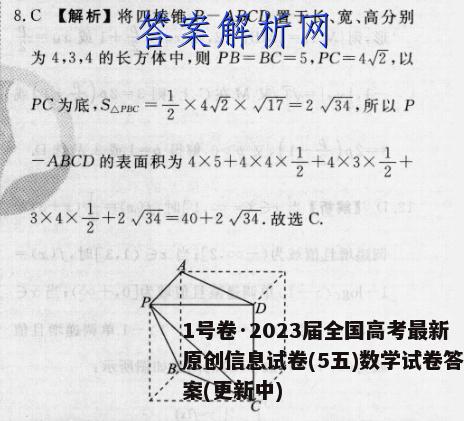 8.C 【解析】将四棱锥 P-ABCD 置于长、宽、高分别
答案解析网
为 4,3,4 的长方体中,则 PB=BC=5,PC=4√2,以
PC 为底,S△PBC=1/2×4√2×√17=2√34,所以 P
-ABCD 的表面积为 4×5+4×4×1/2+4×3×1/2+
3×4×1/2+2√34=40+2√34.故选 C.
A
P
D
B
C
1号卷·2023届全国高考最新
原创信息试卷(5五)数学试卷答
案(更新中)